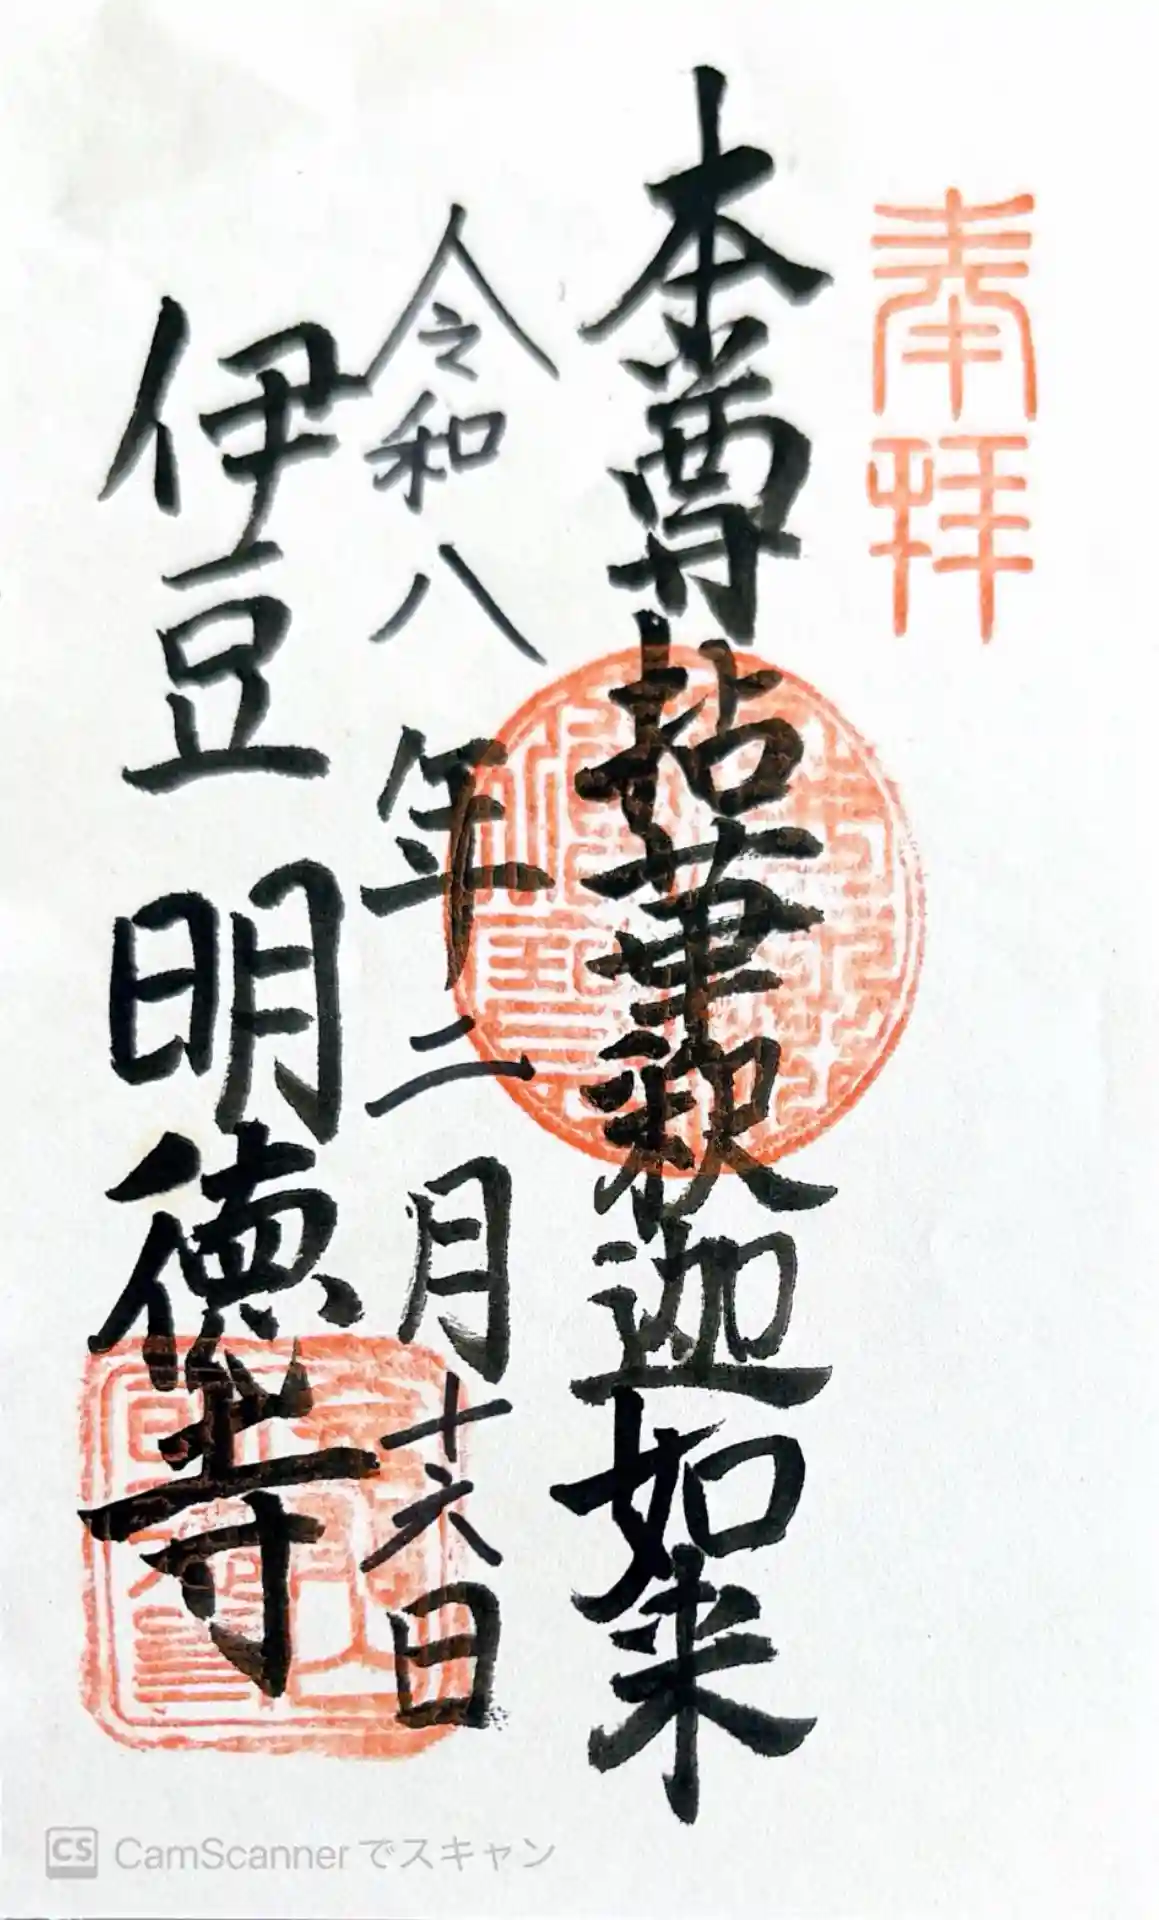 奉拝
本尊拈華釈迦如来
令和八年二月十六日
伊豆明徳寺
CS CamScannerでスキャン